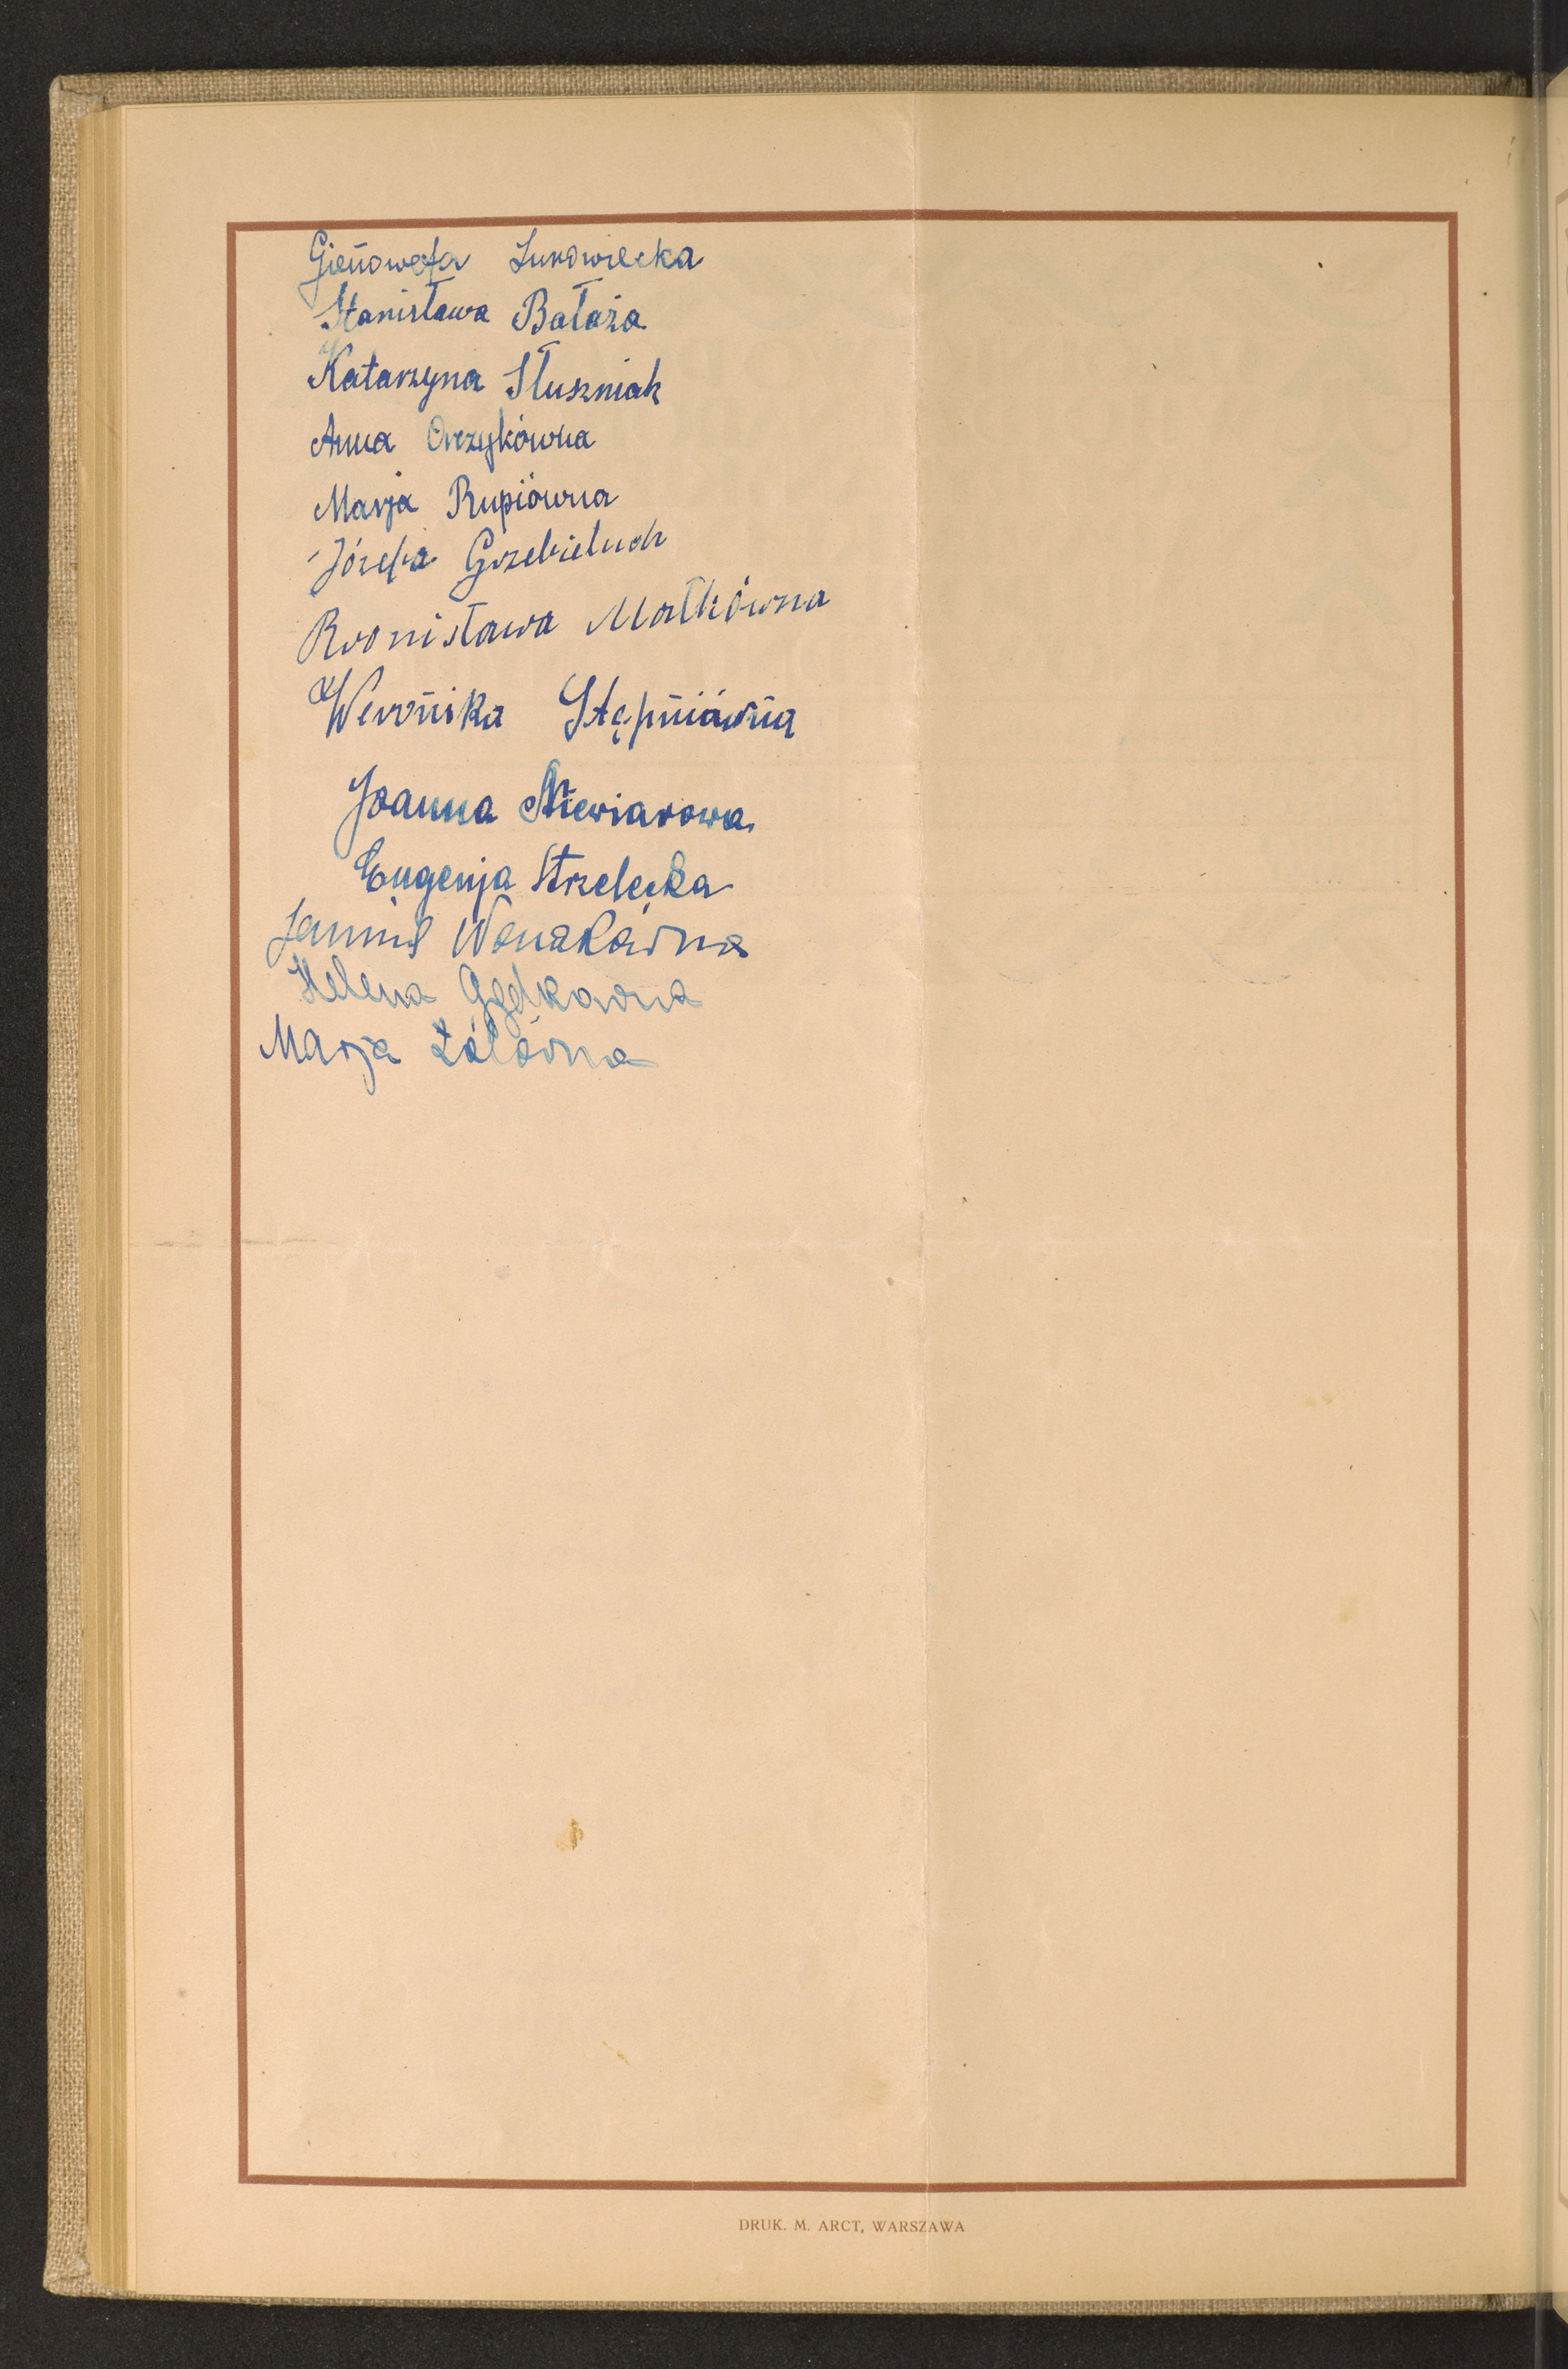 Gieñowefa Żurowiecka
Stanisława Bałaża
Katarzyna Słuszniak
Anna Orczykówna
Marja Rupiówna
Józefa Grzebieluch
Bronisława Małkówna
Weroñika Stępñiówña
Joanna Niewiarowa
Eugenja Strzelecka
Helena
Marja Żółówna
DRUK. M. ARCT, WARSZAWA